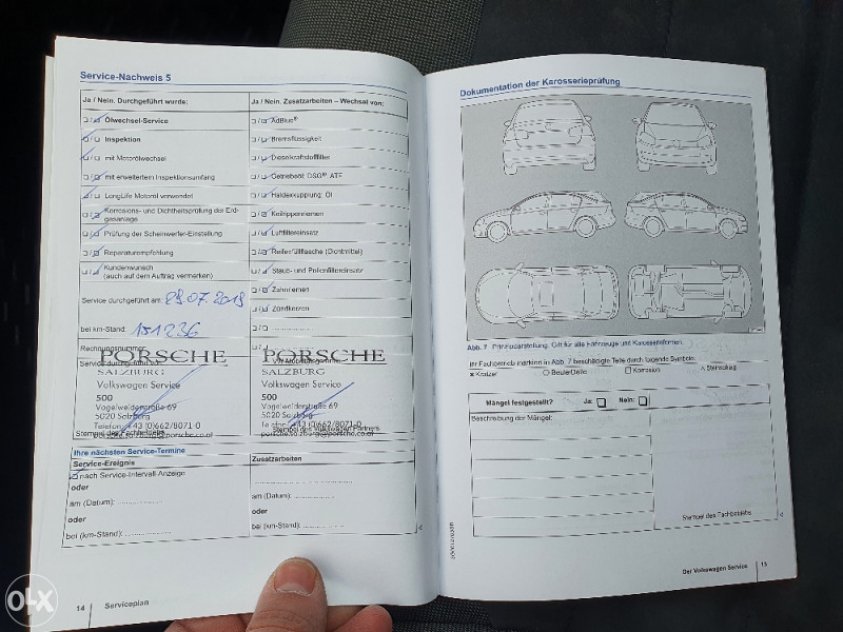 Service-Nachweis 5
Ja / Nein. Durchgeführt wurde:
Ölwechsel-Service
Inspektion
mit Motorölwechsel
mit erweitertem Inspektionsumfang
LongLife Motoröl verwendet
Korrosions- und Dichtheitsprüfung der Erd-
gasanlage
Prüfung der Scheinwerfer-Einstellung
Reparaturempfehlung
Kundenwunsch
(auch auf dem Auftrag vermerken)
Service durchgeführt am: 29.07.2019
bei km-Stand: 151236
Rechnungsnummer
Service durchgeführt von
PORSCHE
SALZBURG
Volkswagen Service
500
Vogelweiderstraße 69
5020 Salzburg
Telefon +43 (0)662/8071-0
porsche.salzburg@porsche.co.at
Stempel des Fachbetriebs
Ja / Nein. Zusatzarbeiten – Wechsel von:
AdBlue®
Bremsflüssigkeit
Dieselkraftstofffilter
Getriebeöl: DSG® ATF
Haldexkupplung: Öl
Keilrippenriemen
Luftfiltereinsatz
Reifenfüllflasche (Dichtmittel)
Staub- und Pollenfiltereinsatz
Zahnriemen
Zündkerzen
PORSCHE
SALZBURG
Volkswagen Service
500
Vogelweiderstraße 69
5020 Salzburg
+43 (0)662/8071-0
Stempel des Volkswagen Partners
porsche.salzburg@porsche.co.at
Ihre nächsten Service-Termine
Service-Ereignis
nach Service-Intervall-Anzeige
oder
am (Datum):
oder
bei (km-Stand):
Zusatzarbeiten
am (Datum):
oder
bei (km-Stand):
14 | Serviceplan
Dokumentation der Karosserieprüfung
Abb. 7 Prinzipdarstellung. Gilt für alle Fahrzeuge und Karosserieformen.
Ihr Fachbetrieb markiert in Abb. 7 beschädigte Teile durch folgende Symbole:
x Kratzer
Beule/Delle
Korrosion
Steinschlag
Mängel festgestellt? Ja: Nein:
Beschreibung der Mängel:
Stempel des Fachbetriebs
Der Volkswagen Service | 15
OLX